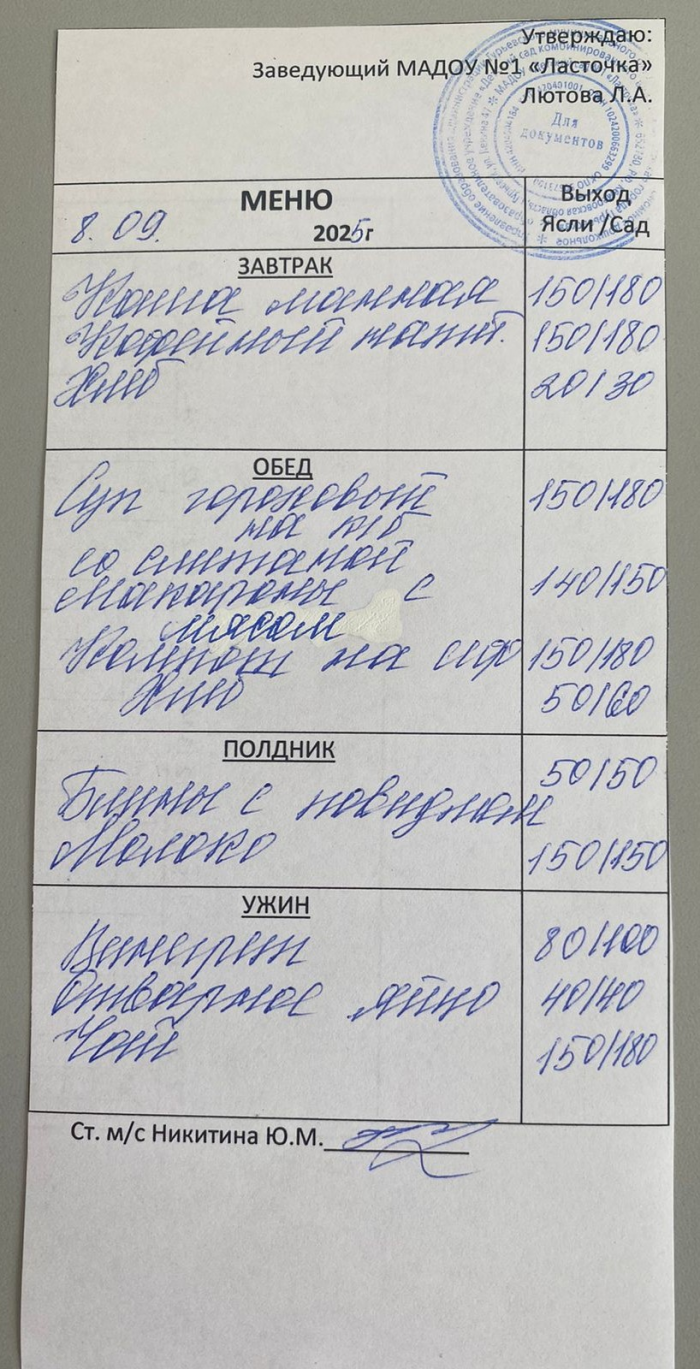 Утверждаю:
Заведующий МАДОУ №1 «Ласточка»
Лютова Л.А.
Для
документов
МЕНЮ
Выход
8.09. 2025г
Ясли /Сад
ЗАВТРАК
Каша манная 150/180
Кофейный напит. 150/180
Хлеб 20/30
ОБЕД
Суп гороховый 150/180
на к/б
со сметаной
Макароны с 140/150
мясом
Компот из с/ф 150/180
Хлеб 50/60
ПОЛДНИК
50/50
Блины с повидлом
Молоко 150/150
УЖИН
Винегрет 80/100
Отварное яйцо 40/40
Чай 150/180
Ст. м/с Никитина Ю.М.